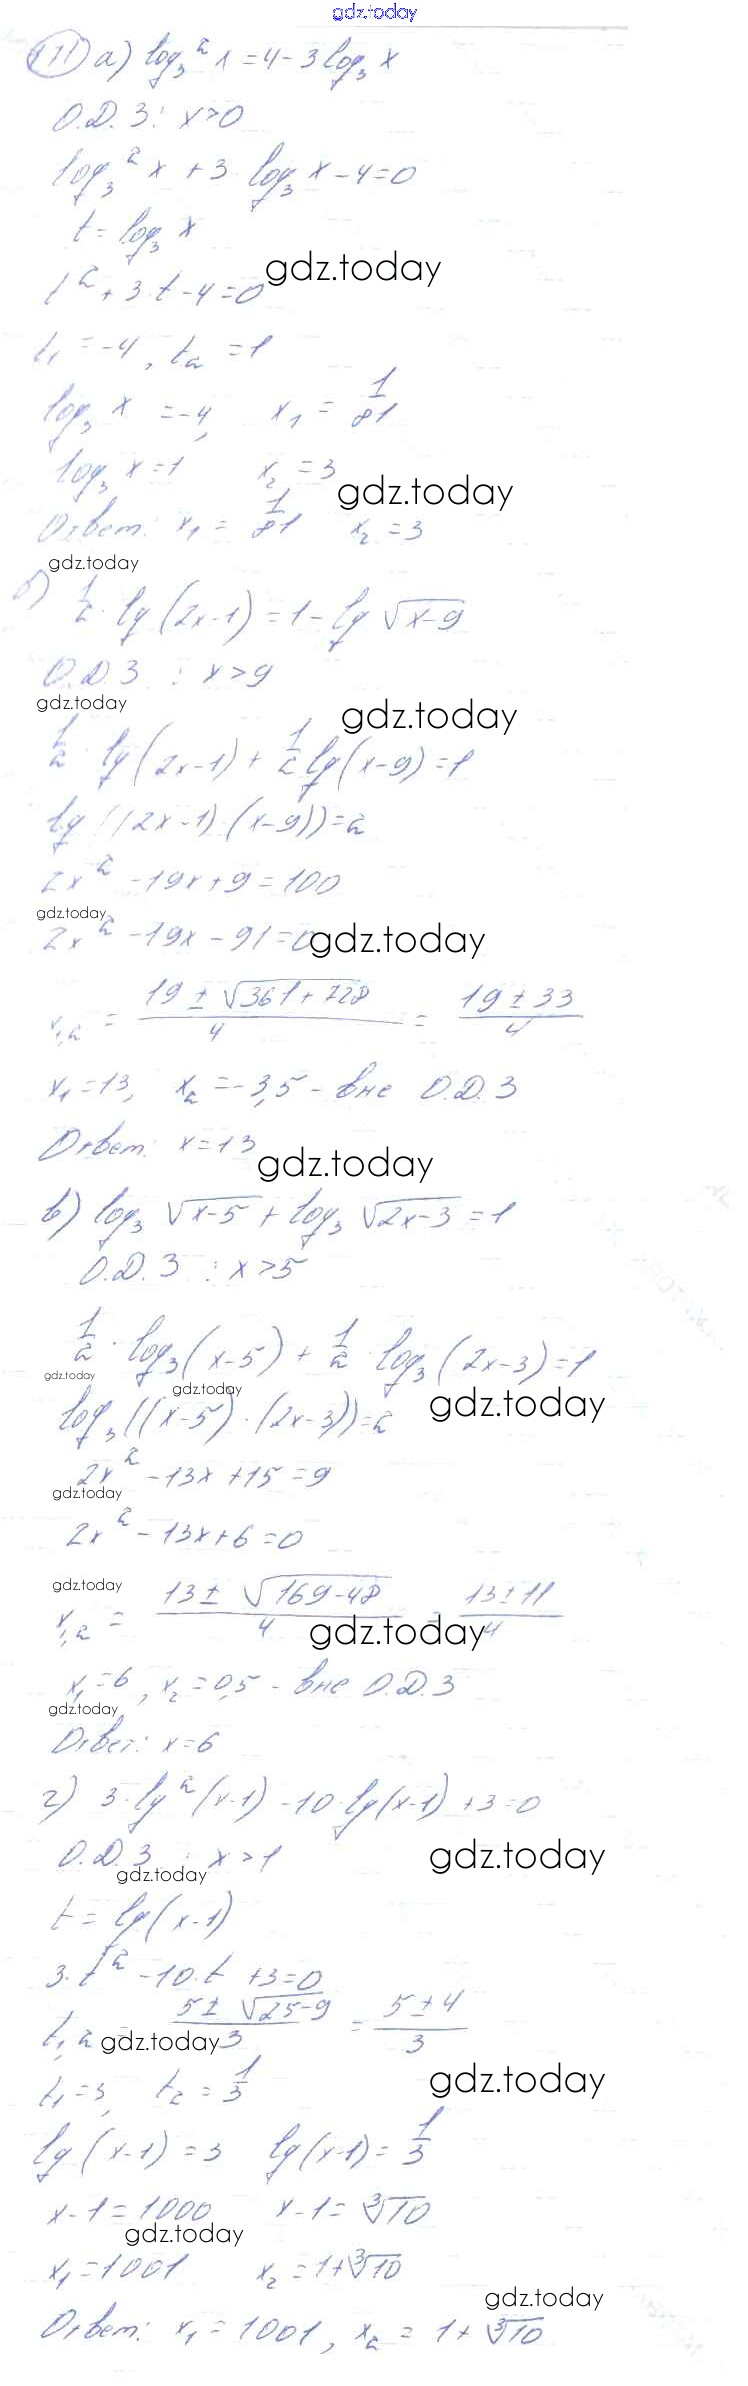 gdz.today
111 а) log₃² x = 4 - 3 log₃ x
О.Д.З: x > 0
log₃² x + 3 · log₃ x - 4 = 0
t = log₃ x
gdz.today
t² + 3 · t - 4 = 0
t₁ = -4, t₂ = 1
log₃ x = -4, x₁ = 1/81
log₃ x = 1 x₂ = 3
gdz.today
Ответ: x₁ = 1/81 x₂ = 3
gdz.today
б) 1/2 · lg (2x-1) = 1 - lg √(x-9)
О.Д.З : x > 9
gdz.today
gdz.today
1/2 · lg (2x-1) + 1/2 lg (x-9) = 1
lg ((2x-1) (x-9)) = 2
2x² - 19x + 9 = 100
gdz.today
2x² - 19x - 91 = 0
gdz.today
x₁,₂ = (19 ± √(361 + 728))/4 = (19 ± 33)/4
x₁ = 13, x₂ = -3,5 - вне О.Д.З
Ответ: x = 13
gdz.today
в) log₃ √(x-5) + log₃ √(2x-3) = 1
О.Д.З : x > 5
1/2 · log₃ (x-5) + 1/2 · log₃ (2x-3) = 1
gdz.today
gdz.today
gdz.today
log₃ ((x-5) · (2x-3)) = 2
2x² - 13x + 15 = 9
gdz.today
2x² - 13x + 6 = 0
gdz.today
x₁,₂ = (13 ± √(169-48))/4 = (13 ± 11)/4
gdz.today
x₁ = 6, x₂ = 0,5 - вне О.Д.З
gdz.today
Ответ: x = 6
г) 3 · lg² (x-1) - 10 · lg (x-1) + 3 = 0
О.Д.З : x > 1
gdz.today
gdz.today
t = lg (x-1)
3 · t² - 10 · t + 3 = 0
t₁,₂ = (5 ± √(25-9))/3 = (5 ± 4)/3
gdz.today
t₁ = 3, t₂ = 1/3
gdz.today
lg (x-1) = 3 lg (x-1) = 1/3
x - 1 = 1000 x - 1 = ∛10
gdz.today
x₁ = 1001 x₂ = 1 + ∛10
gdz.today
Ответ: x₁ = 1001, x₂ = 1 + ∛10